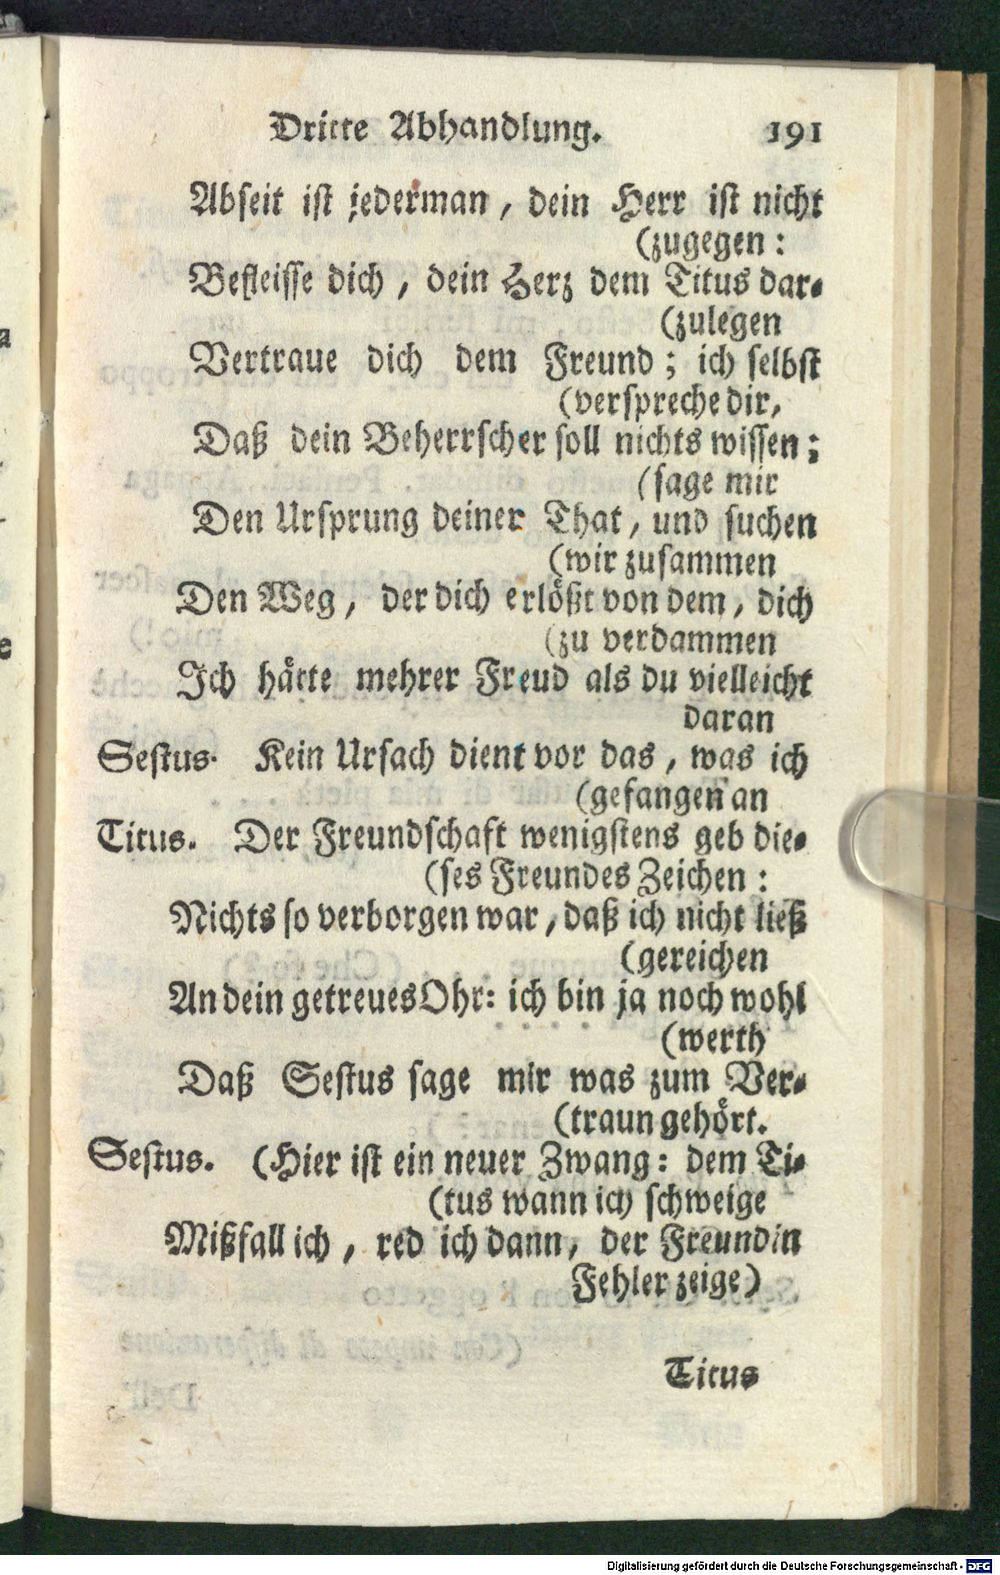 Dritte Abhandlung. 191
Abseit ist jederman, dein Herr ist nicht
(zugegen:
Befleisse dich, dein Herz dem Titus dar-
(zulegen
Vertraue dich dem Freund; ich selbst
(verspreche dir,
Daß dein Beherrscher soll nichts wissen;
(sage mir
Den Ursprung deiner That, und suchen
(wir zusammen
Den Weg, der dich erlößt von dem, dich
(zu verdammen
Ich hätte mehrer Freud als du vielleicht
daran
Sestus. Kein Ursach dient vor das, was ich
(gefangen an
Titus. Der Freundschaft wenigstens geb die-
(ses Freundes Zeichen:
Nichts so verborgen war, daß ich nicht ließ
(gereichen
An dein getreues Ohr: ich bin ja noch wohl
(werth
Daß Sestus sage mir was zum Ver-
(traun gehört.
Sestus. (Hier ist ein neuer Zwang: dem Ti-
(tus wann ich schweige
Mißfall ich, red ich dann, der Freundin
Fehler zeige)
Titus
Digitalisierung gefördert durch die Deutsche Forschungsgemeinschaft - DFG